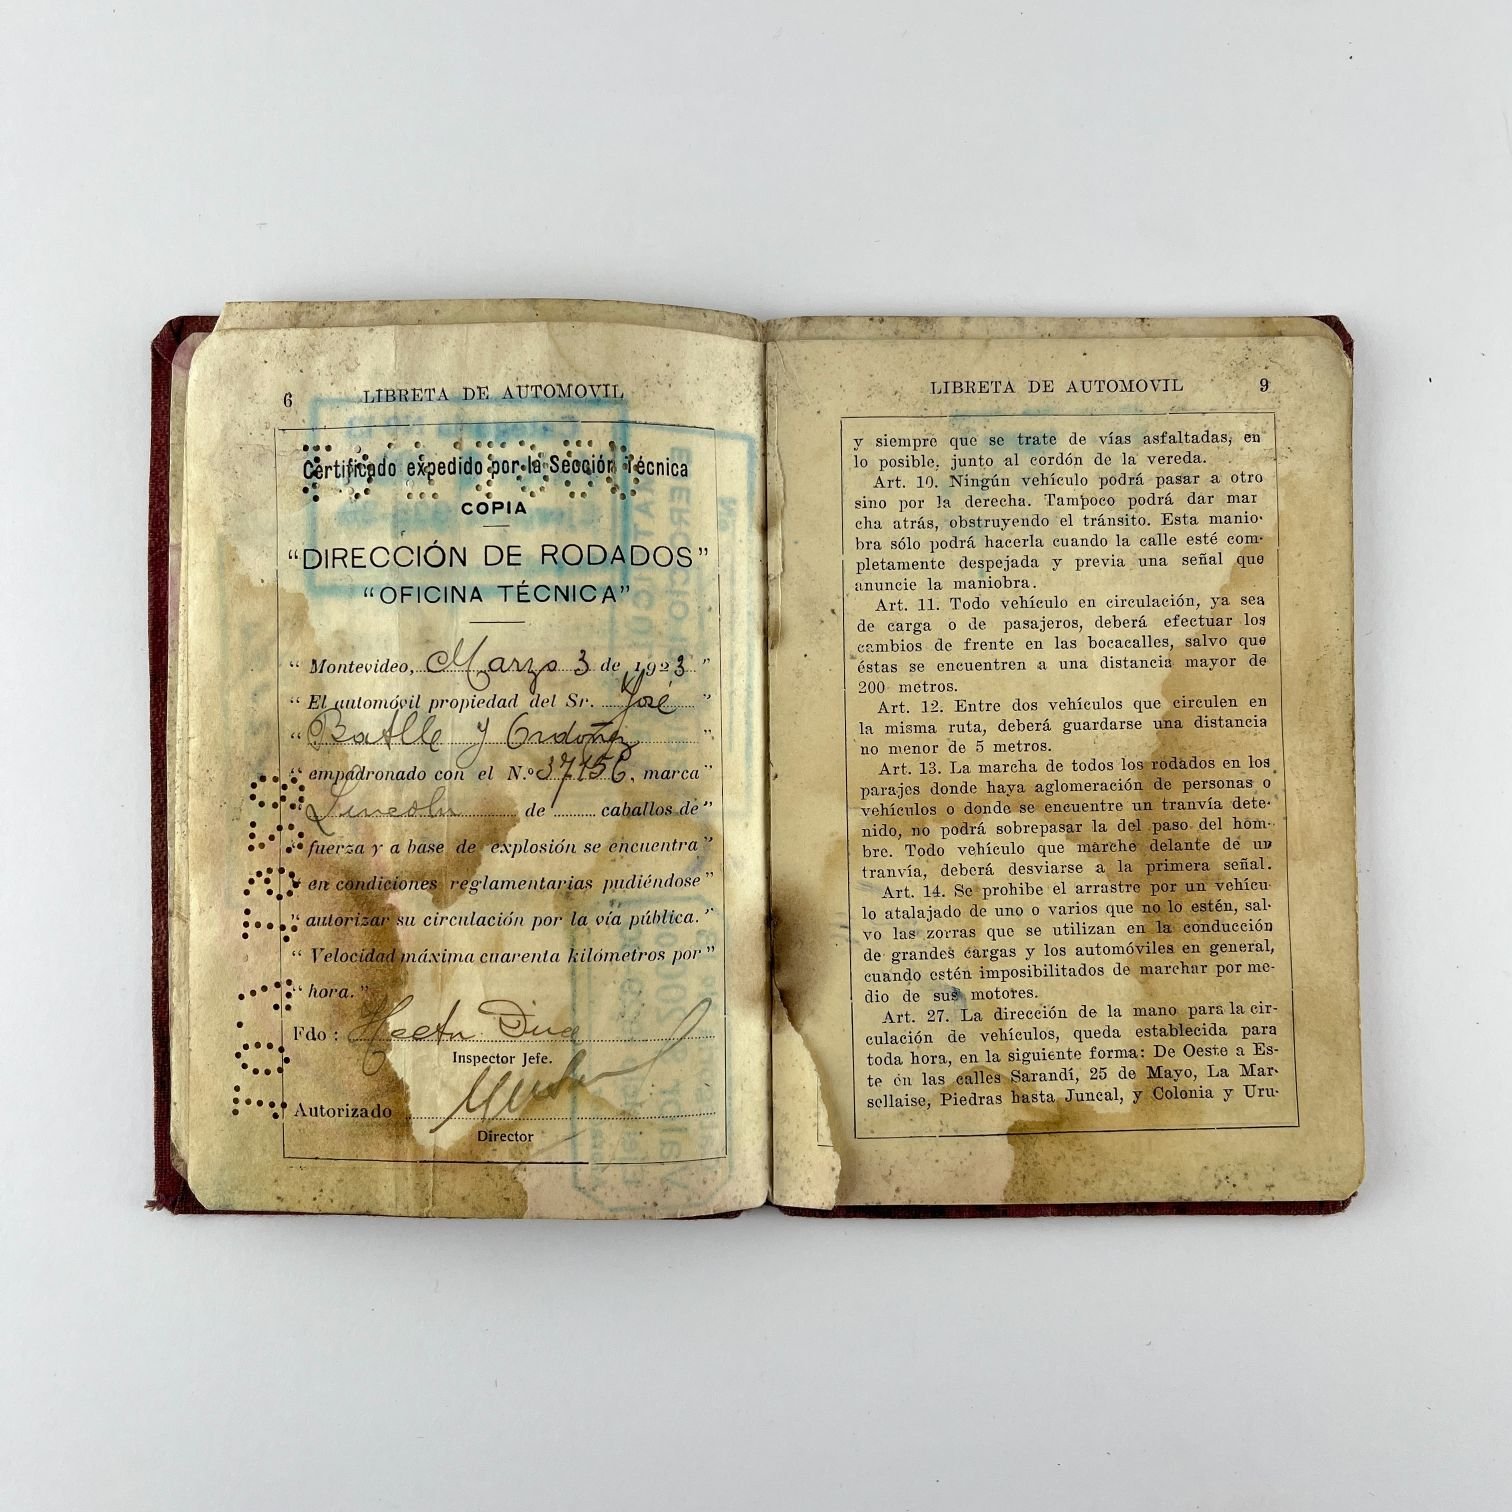 6
LIBRETA DE AUTOMOVIL
Certificado expedido por la Sección Técnica
COPIA
"DIRECCIÓN DE RODADOS"
"OFICINA TÉCNICA"
" Montevideo, Marzo 3 de 1923 "
" El automóvil propiedad del Sr. José "
" Batlle y Ordoñez "
" empadronado con el N.º 37156, marca "
" Lincoln de ........ caballos de "
" fuerza y a base de explosión se encuentra "
" en condiciones reglamentarias pudiéndose "
" autorizar su circulación por la vía pública. "
" Velocidad máxima cuarenta kilómetros por "
" hora. "
Fdo : Hector
Inspector Jefe.
Autorizado
Director
LIBRETA DE AUTOMOVIL
9
y siempre que se trate de vías asfaltadas, en
lo posible, junto al cordón de la vereda.
Art. 10. Ningún vehículo podrá pasar a otro
sino por la derecha. Tampoco podrá dar mar
cha atrás, obstruyendo el tránsito. Esta manio-
bra sólo podrá hacerla cuando la calle esté com-
pletamente despejada y previa una señal que
anuncie la maniobra.
Art. 11. Todo vehículo en circulación, ya sea
de carga o de pasajeros, deberá efectuar los
cambios de frente en las bocacalles, salvo que
éstas se encuentren a una distancia mayor de
200 metros.
Art. 12. Entre dos vehículos que circulen en
la misma ruta, deberá guardarse una distancia
no menor de 5 metros.
Art. 13. La marcha de todos los rodados en los
parajes donde haya aglomeración de personas o
vehículos o donde se encuentre un tranvía dete-
nido, no podrá sobrepasar la del paso del hom-
bre. Todo vehículo que marche delante de un
tranvía, deberá desviarse a la primera señal.
Art. 14. Se prohibe el arrastre por un vehícu-
lo atalajado de uno o varios que no lo estén, sal-
vo las zorras que se utilizan en la conducción
de grandes cargas y los automóviles en general,
cuando estén imposibilitados de marchar por me-
dio de sus motores.
Art. 27. La dirección de la mano para la cir-
culación de vehículos, queda establecida para
toda hora, en la siguiente forma: De Oeste a Es-
te en las calles Sarandí, 25 de Mayo, La Mar-
sellaise, Piedras hasta Juncal, y Colonia y Uru-